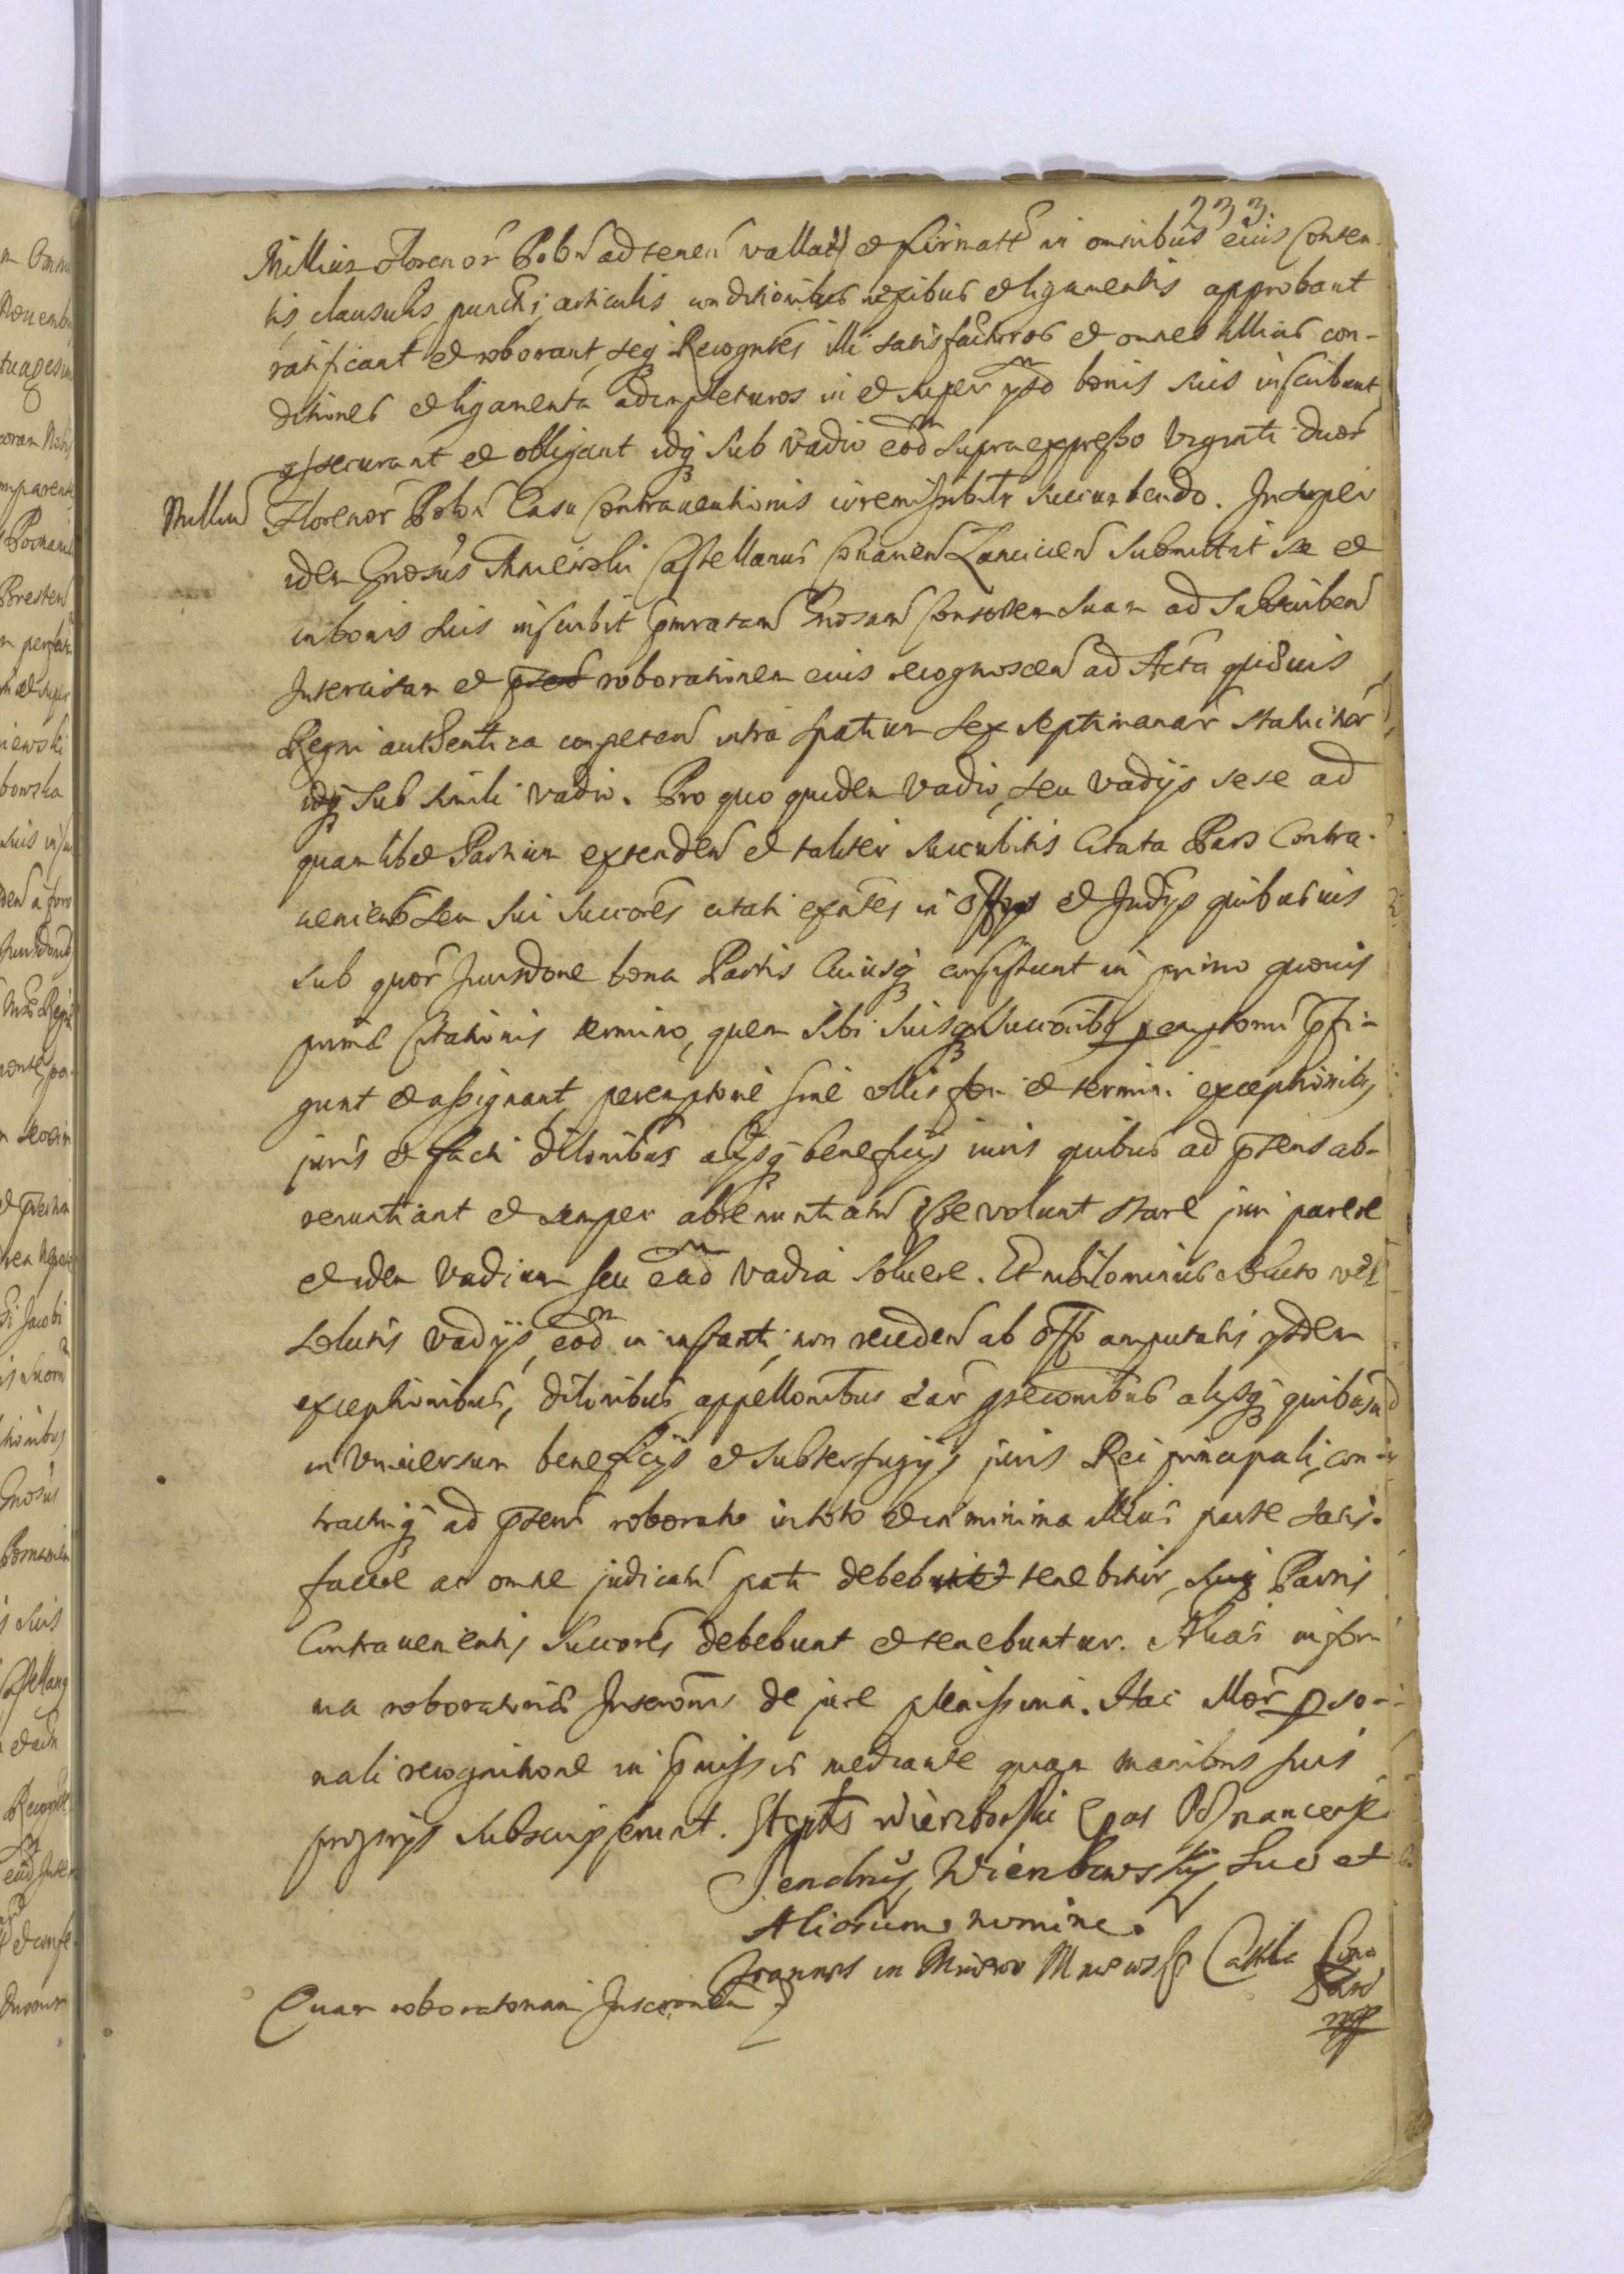 233
Millium Florenor Polon ad tenen vallat et firmatt in omnibus eius conten
tis, clausulis, punctis, articulis conditionibus nexibus et ligamentis approbant
ratificant et roborant, seq Recognites illi satisfacturos et omnes illius con-
ditiones et ligamenta adimpleturos in et super bonis suis inscribunt
assecurant et obligant idq sub vadio eod supra expresso viginti duor
Millium Florenor Polon Casu Contrauentionis irremissibilr succumbendo. Insuper
idem Gnosus Mniewski Castellanus Conarien Lancicien submittit se et
in bonis suis inscribit pmratam Gnosam Consortem suam ad subscriben
Intercisam et roborationem eius recognoscen ad Acta quaevis
Regni authentica competen intra spatium sex septimanar
idq sub simili vadio. Pro quo quidem vadio, seu vadijs sese ad
quamlibet Partium extenden et taliter succubitis Citata Pars Contra-
ueniens seu sui succores citati exntes in Offys et Judijs quibusuis
sub quor Jurisdone bona Partis Cuiusq consistunt in primo quouis
primae Citationis termino, quem sibi suisq succoribq pemptorm pfi-
gunt et assignant, peremptorie sine ollis fori et termini exceptionibq
juris et facti dilonibus alijsq beneficijs iuris quibus ad psens ab-
renuntiant et semper abrenuntiatu esse volunt stare juri parere
et idem vadium seu ead vadia soluere. Et nihilominus soluto vel
solutis vadijs, eod in instanti, non receden ab Offo amputatis ysdem
exceptionibus, dilonibus appellonibus ear psecuonibus alijsq quibusuis
in vniuersum beneficijs et subterfugijs juris Rei principali, con-
tractuiq ad psens roborato in toto et in minima illius parte satis-
facere ac omne judicatu pati debebit et tenebitur, suiq Partis
Contrauenientis succores debebunt et tenebuntur. Alias in for
ma roboratoriae Inscronis de jure plenissima. Hac illor pso-
nali recognitione in pmissis mediante quam manibus suis
proprijs subscripserunt. Stephs Wierzbowski Epus Posnaniensis
Jendrzy Wierzbowsky suo et
Aliorum nomine.
Joannes in Mniewo Mniewski Castelle Cona
Lanc
mp
Quar roboratoriam Inscronem